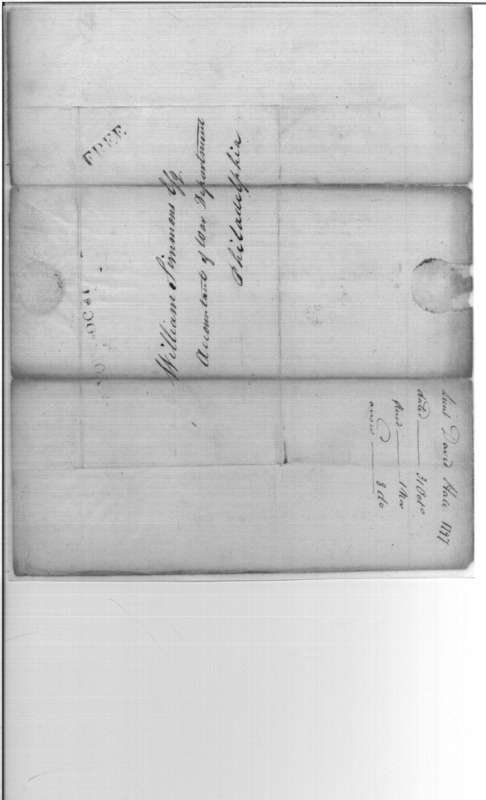 FREE
William Simmons Esq
Accountant of War Department
Philadelphia
Lieut David Hale 1797
dated — 31 Octo
Recd — 1 Nov
answd — 8 do